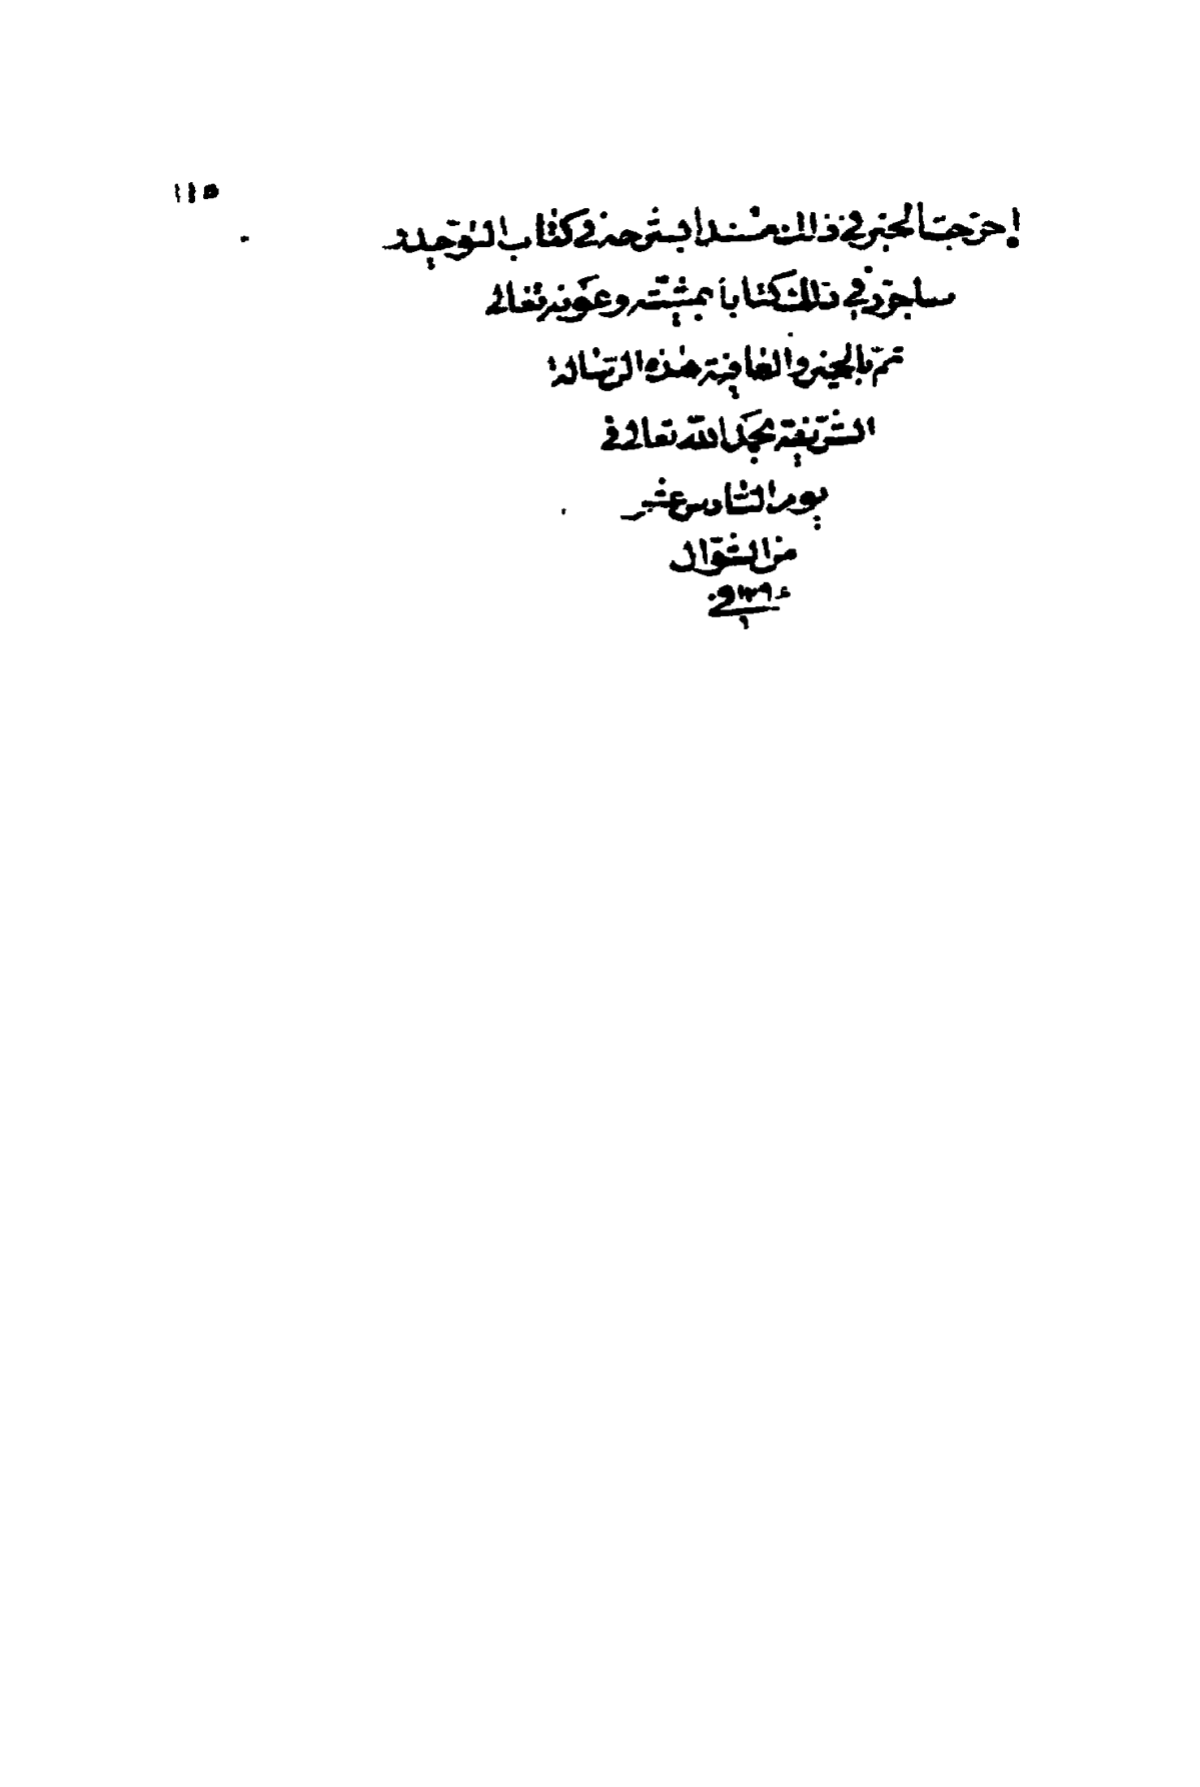 ١١٥
اخرجت الخبر في ذلك مسندا بشرحه في كتاب التوحيد و
ساجرد في ذلك كتاباً بمشيته وعونه تعالى
تمّ بالخير والعافية هذه الرسالة
الشريفة بحمد الله تعالى في
يوم السادس عشر
من الشوّال